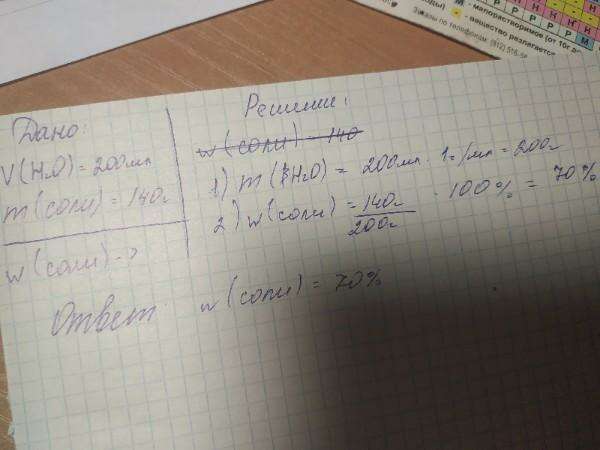 - малорастворимое (от 10г до
- вещество разлагается
Заказы по телефонам: (912) 516-
Дано:
V(H₂O) = 200мл
m(соли) = 140г
w(соли) - ?
Решение:
w(соли) = 140
1) m(H₂O) = 200мл · 1г/мл = 200г
2) w(соли) = 140г/200г · 100% = 70%
Ответ: w(соли) = 70%